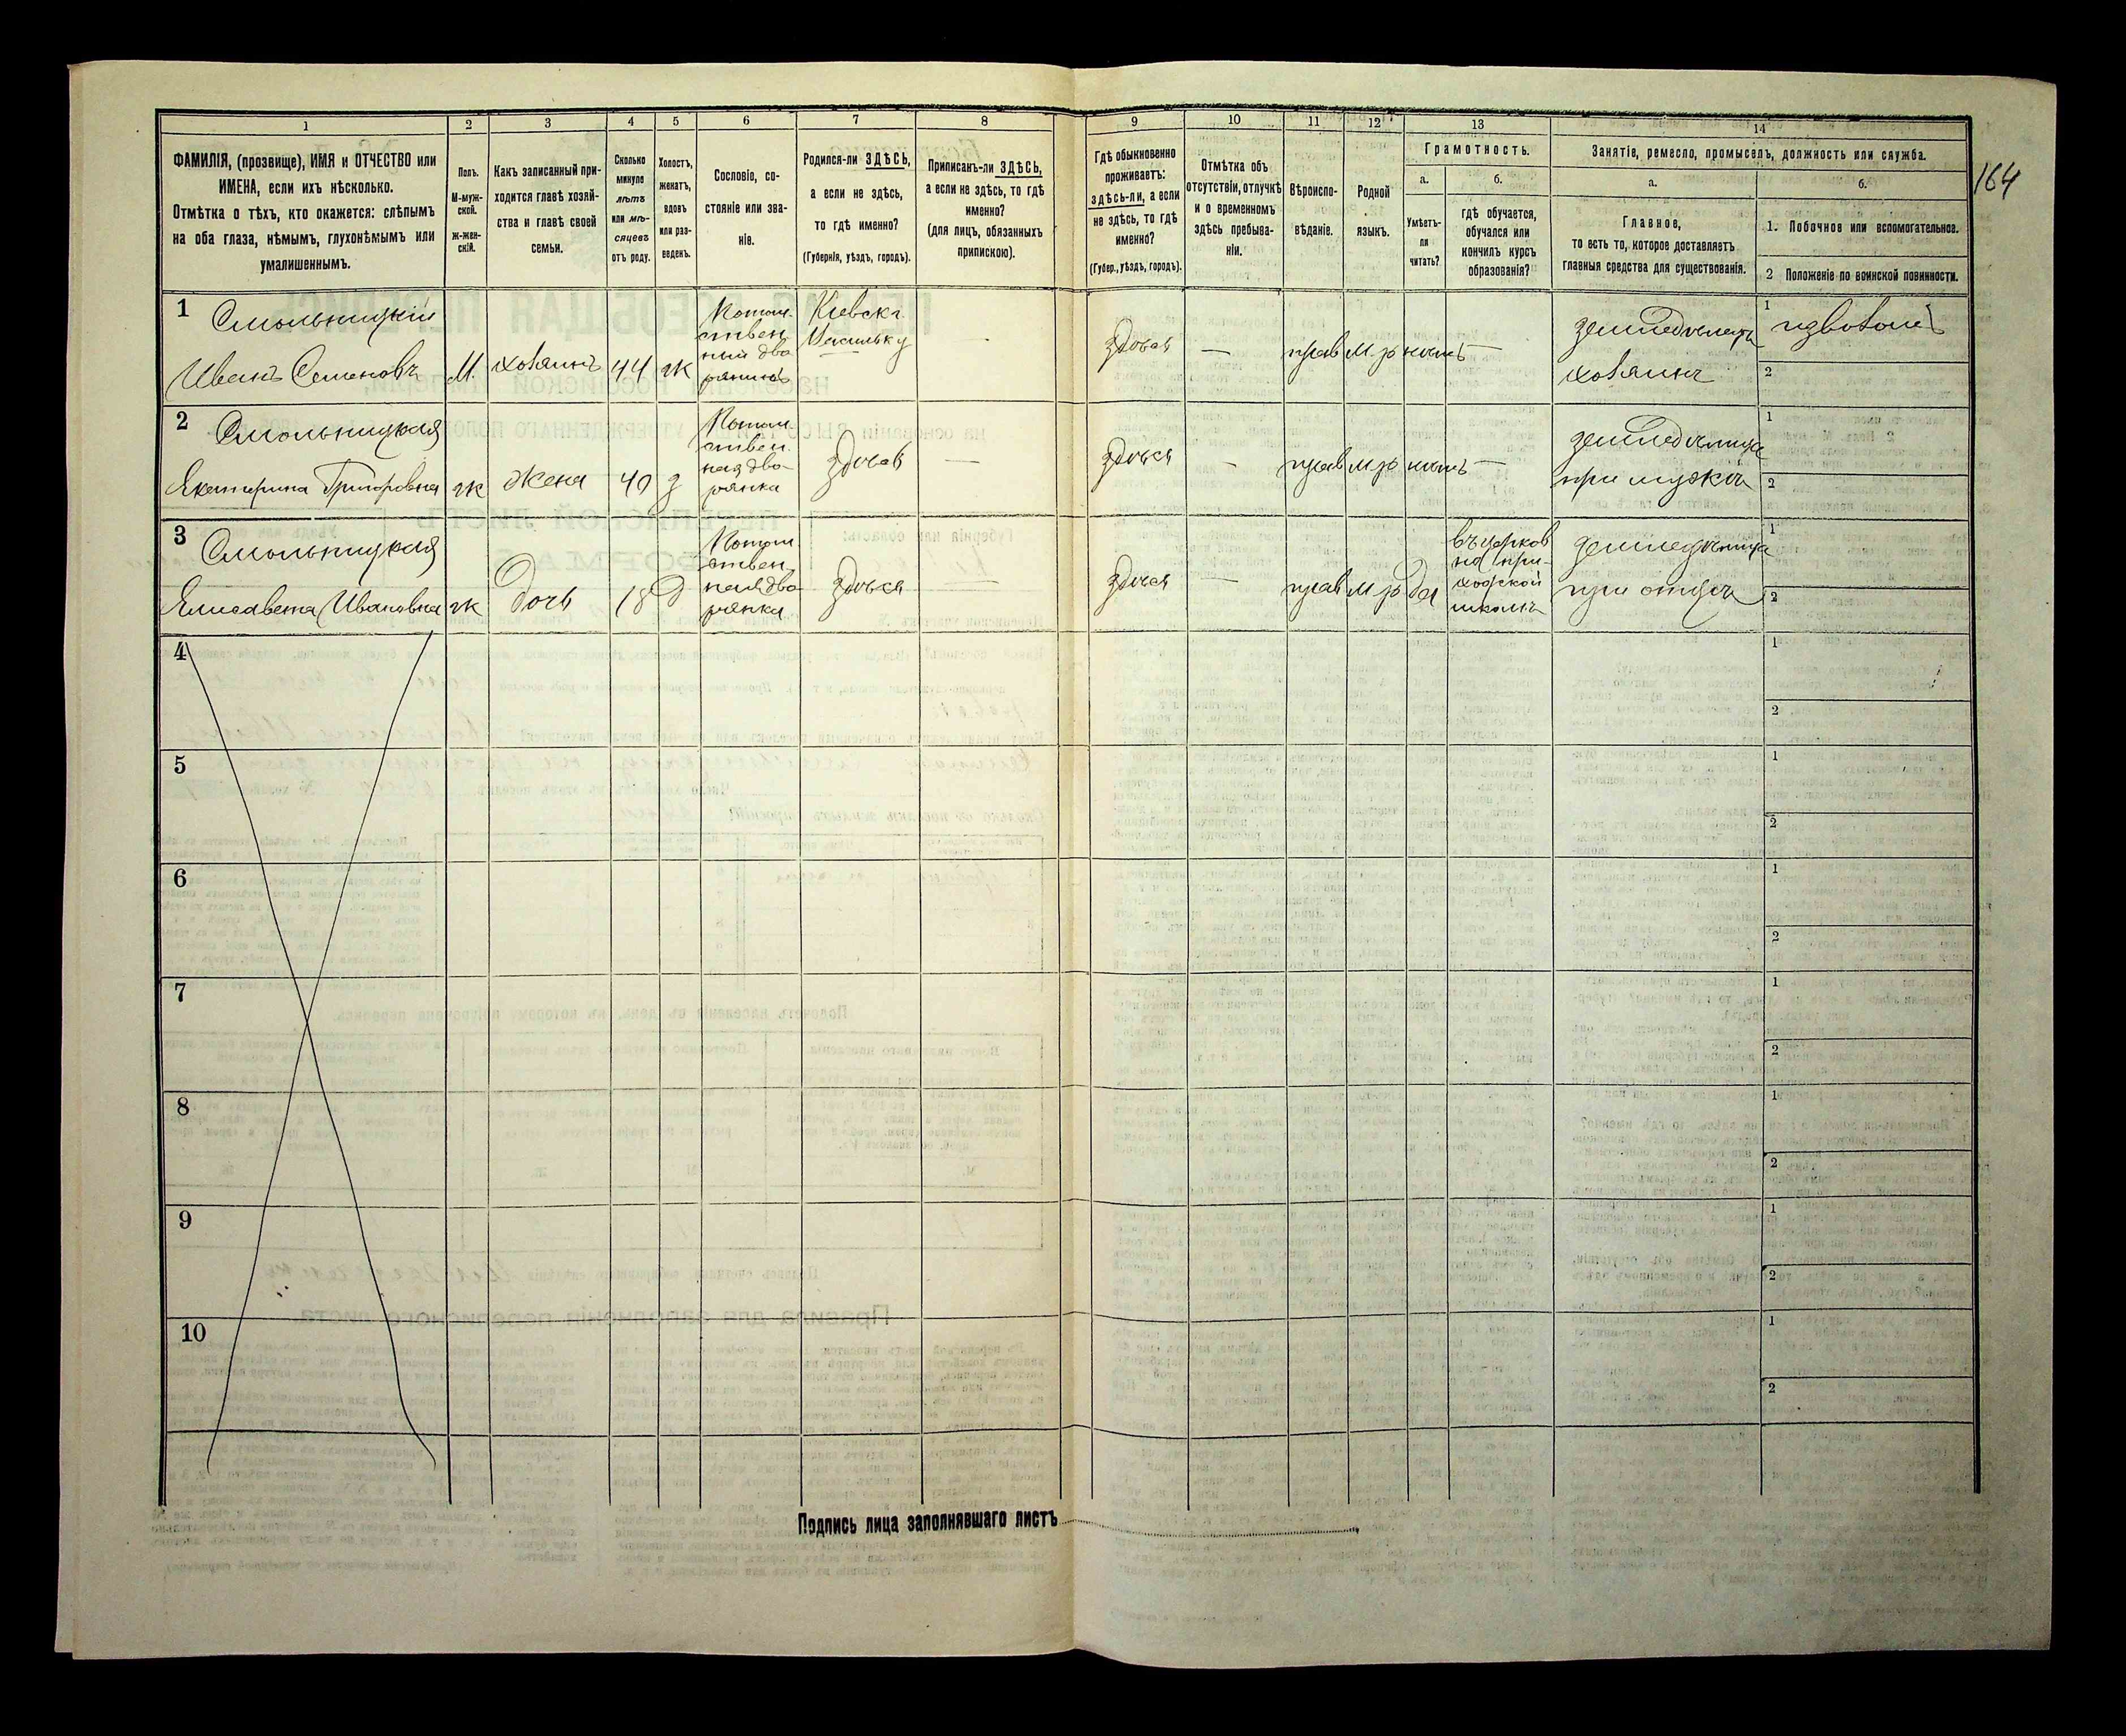 164
1
2
3
4
5
6
7
8
9
10
11
12
13
14
ФАМИЛІЯ, (прозвище), ИМЯ и ОТЧЕСТВО или
ИМЕНА, если ихъ нѣсколько.
Отмѣтка о тѣхъ, кто окажется: слѣпымъ
на оба глаза, нѣмымъ, глухонѣмымъ или
умалишеннымъ.
Полъ.
М-муж-
ской.
Ж-жен-
скій.
Какъ записанный при-
ходится главѣ хозяй-
ства и главѣ своей
семьи.
Сколько
минуло
лѣтъ
или мѣ-
сяцевъ
отъ роду.
Холостъ,
женатъ,
вдовъ
или раз-
веденъ.
Сословіе, со-
стояніе или зва-
ніе.
Родился-ли ЗДѢСЬ,
а если не здѣсь,
то гдѣ именно?
(Губернія, уѣздъ, городъ).
Приписанъ-ли ЗДѢСЬ,
а если не здѣсь, то гдѣ
именно?
(для лицъ, обязанныхъ
припискою).
Гдѣ обыкновенно
проживаетъ:
здѣсь-ли, а если
не здѣсь, то гдѣ
именно?
(Губер., уѣздъ, городъ).
Отмѣтка объ
отсутствіи, отлучкѣ
и о временномъ
здѣсь пребыва-
ніи.
Вѣроиспо-
вѣданіе.
Родной
языкъ.
Грамотность.
а.
Умѣетъ-
ли
читать?
б.
гдѣ обучается,
обучался или
кончилъ курсъ
образованія?
Занятіе, ремесло, промыселъ, должность или служба.
а.
Главное,
то есть то, которое доставляетъ
главныя средства для существованія.
б.
1. Побочное или вспомогательное.
2 Положеніе по воинской повинности.
1
Смольницкій
Иванъ Семеновъ
М.
хозяинъ
44
ж
Потом-
ствен
ний дво
рянинъ
Кіевск.
Васильк у
—
здѣсь
—
прав
м.р
нѣтъ
—
земледѣлецъ
хозяинъ
1
2
2
Смольницкая
Екатерина Григоровна
ж
жена
40
з
Потом-
ствен
ная дво-
рянка
здѣсь
—
здѣсь
—
прав
м.р
нѣтъ
—
земледѣлица
при мужѣ
1
2
3
Смольницкая
Елисавета Ивановна
ж
дочь
18
д
Потом-
ствен-
ная дво
рянка
здѣсь
здѣсь
—
прав
м.р
да
въ церков
но при-
ходской
школѣ
земледѣлица
при отцѣ
1
2
4
1
2
5
1
2
6
1
2
7
1
2
8
1
2
9
1
2
10
1
2
Подпись лица заполнявшаго листъ